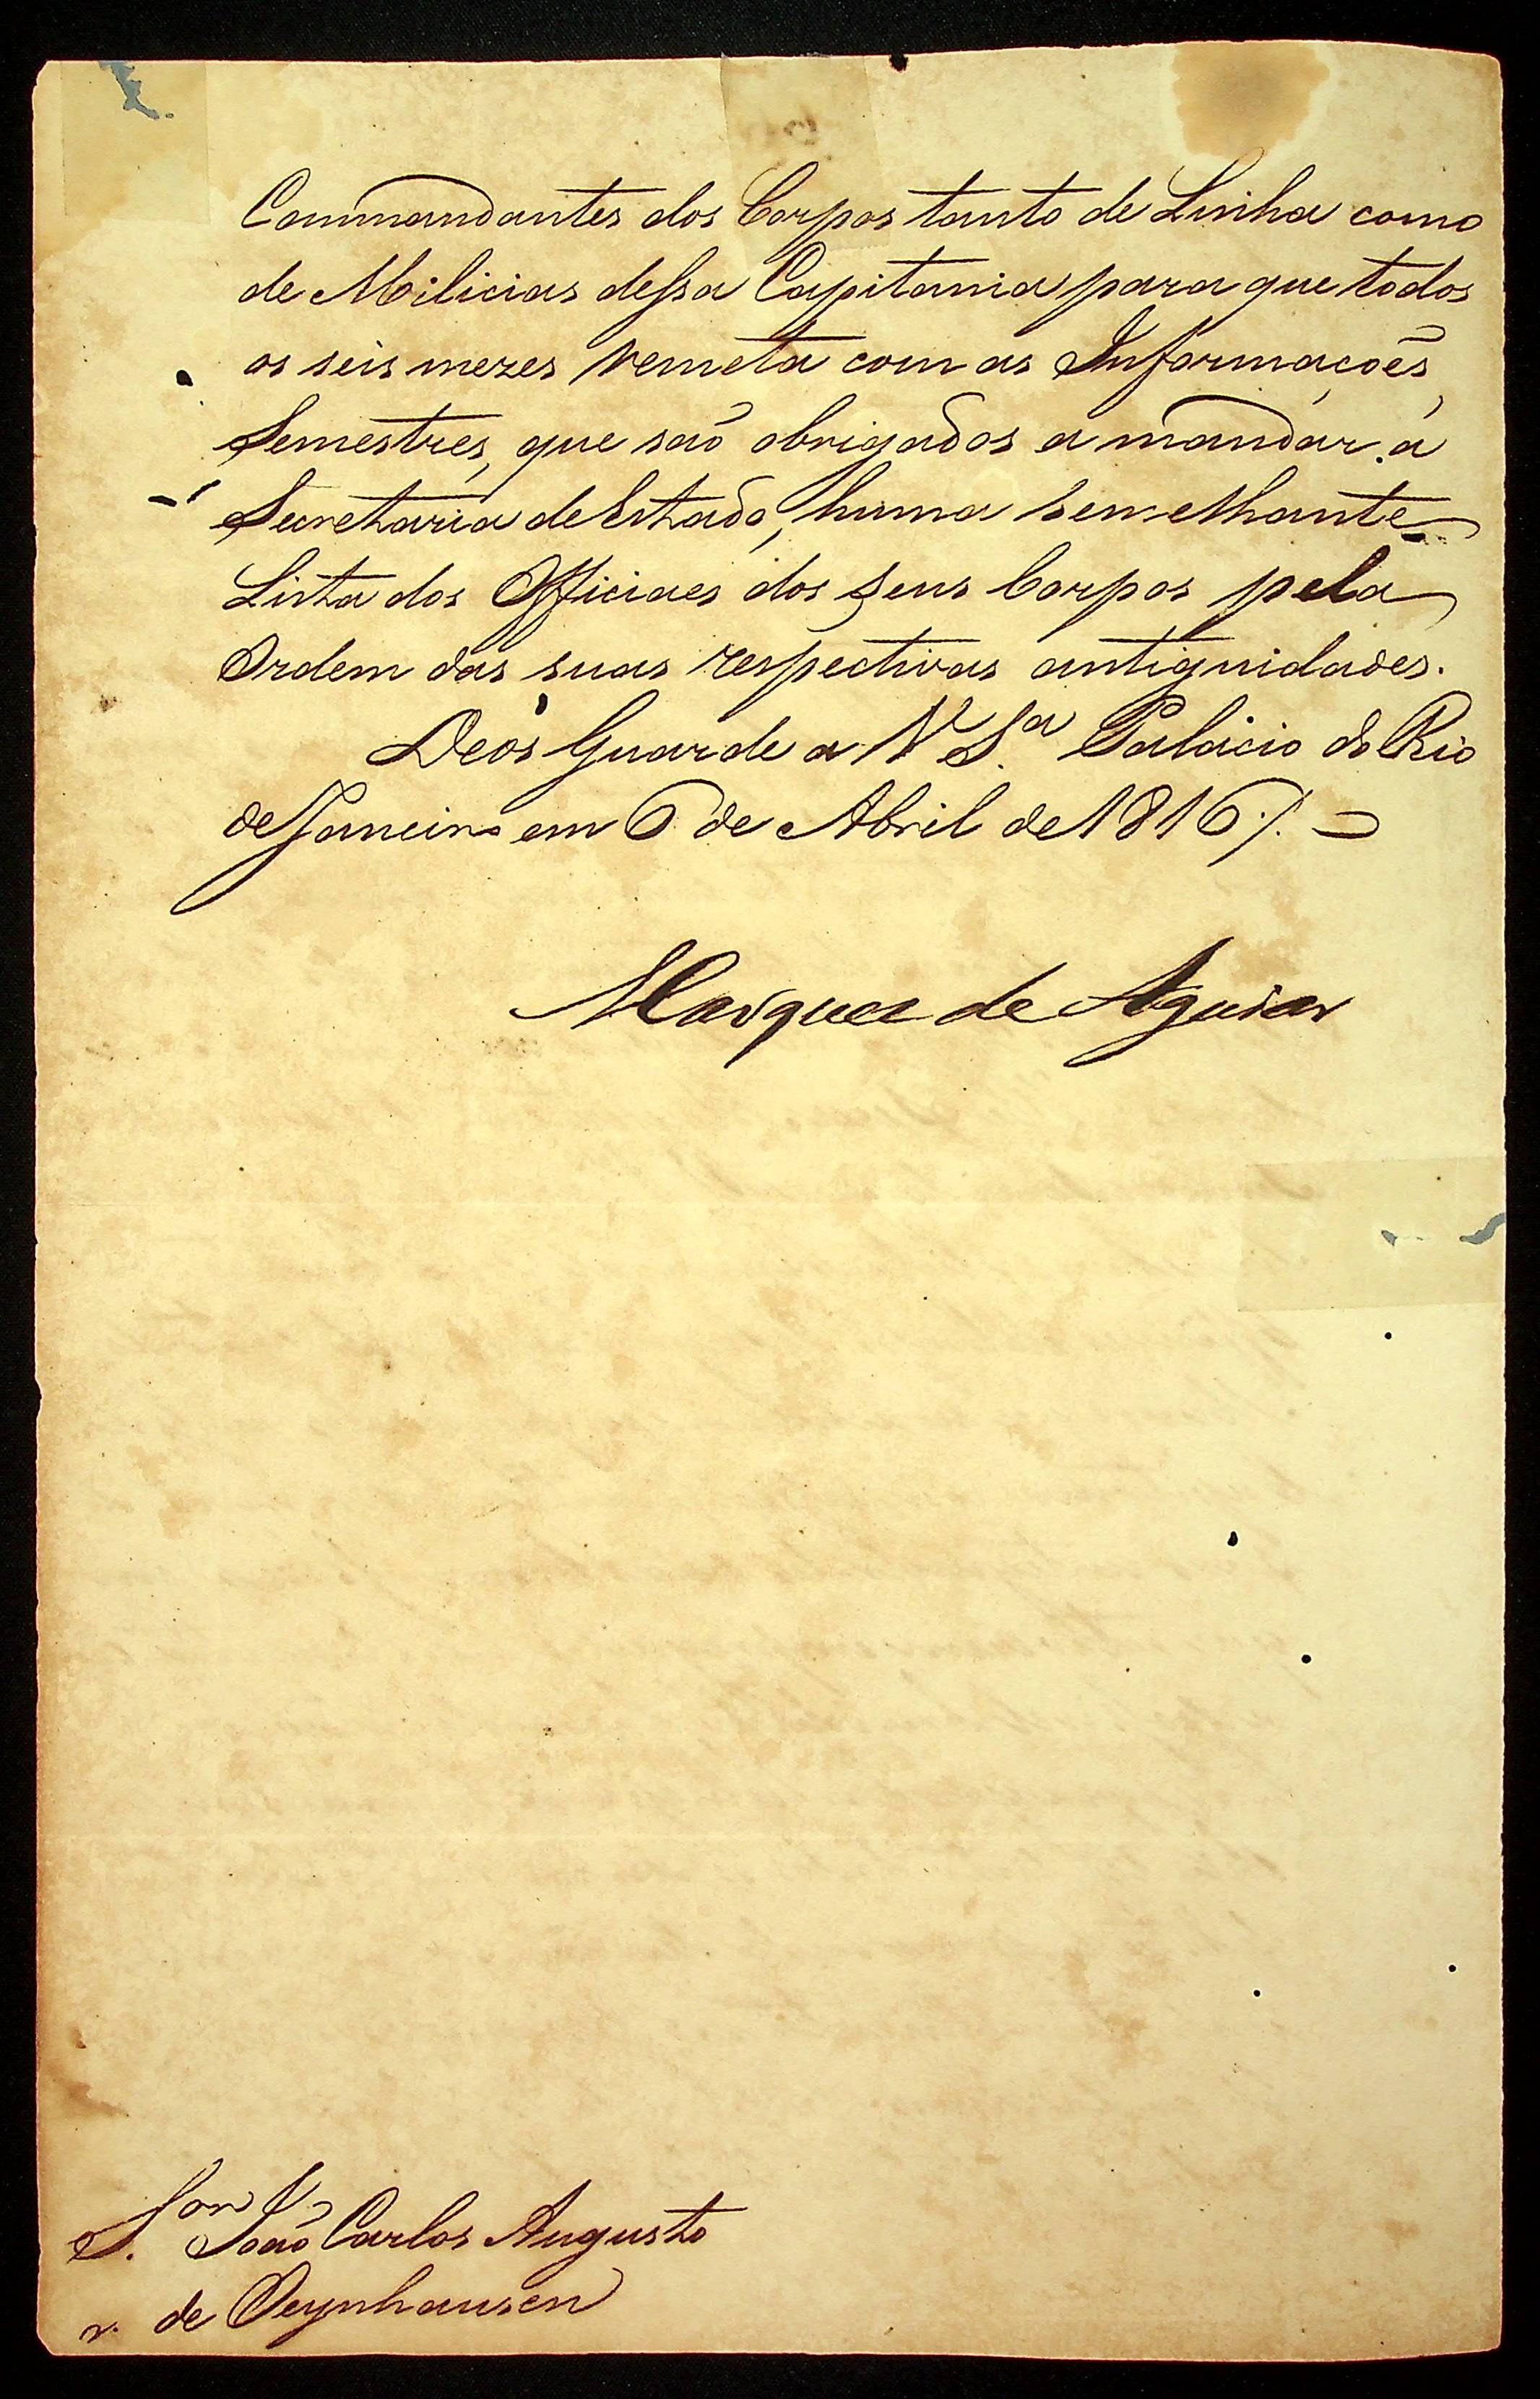 Commandantes dos Corpos tanto de Linha como
de Milicias dessa Capitania para que todos
os seis mezes remeta com as Informaçoẽs
Semestres, que saõ obrigados a mandar á
Secretaria de Estado, huma semelhante
Lista dos Officiaes dos seus Corpos pela
Ordem das suas respectivas antiguidades.
Deos Guarde a V S.ª Palacio do Rio
de Janeiro em 6 de Abril de 1816 /. 
Marquez de Aguiar
S.or João Carlos Augusto
de Oeynhausen